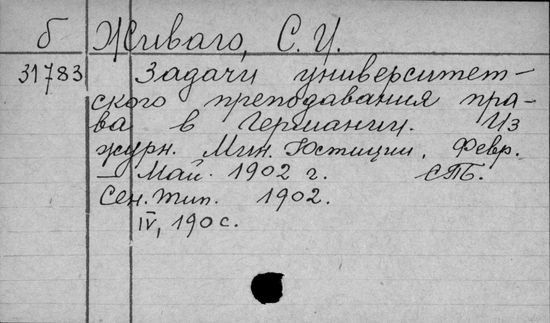 б Живаго, С. И.
31783 Задачи университет-
ского преподавания пра-
ва в Германии. Из
журн. Мин. Юстиции, Февр.
– Май. 1902 г. СПБ.
Сен. тип. 1902.
IV, 190 с.